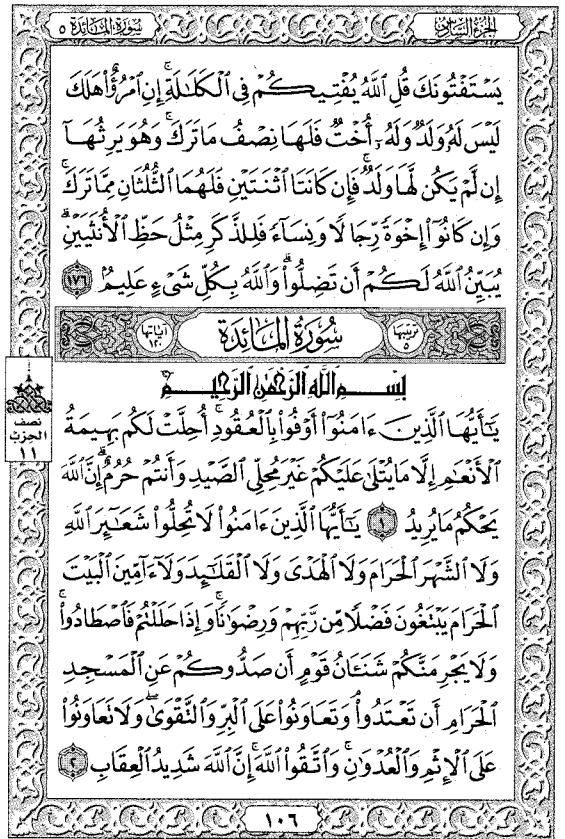 سُورَةُ المَائِدَة ٥
الجُزْءُ السَّادِسُ
يَسْتَفْتُونَكَ قُلِ ٱللَّهُ يُفْتِيكُمْ فِى ٱلْكَلَٰلَةِ ۚ إِنِ ٱمْرُؤٌا۟ هَلَكَ
لَيْسَ لَهُۥ وَلَدٌ وَلَهُۥٓ أُخْتٌ فَلَهَا نِصْفُ مَا تَرَكَ ۚ وَهُوَ يَرِثُهَآ
إِن لَّمْ يَكُن لَّهَا وَلَدٌ ۚ فَإِن كَانَتَا ٱثْنَتَيْنِ فَلَهُمَا ٱلثُّلُثَانِ مِمَّا تَرَكَ ۚ
وَإِن كَانُوٓا۟ إِخْوَةً رِّجَالًا وَنِسَآءً فَلِلذَّكَرِ مِثْلُ حَظِّ ٱلْأُنثَيَيْنِ ۗ
يُبَيِّنُ ٱللَّهُ لَكُمْ أَن تَضِلُّوا۟ ۗ وَٱللَّهُ بِكُلِّ شَىْءٍ عَلِيمٌۢ ١٧٦
ترتيبها ٥
سُورَةُ المَائِدَة
آياتها ١٢٠
بِسْمِ ٱللَّهِ ٱلرَّحْمَٰنِ ٱلرَّحِيمِ
يَٰٓأَيُّهَا ٱلَّذِينَ ءَامَنُوٓا۟ أَوْفُوا۟ بِٱلْعُقُودِ ۚ أُحِلَّتْ لَكُم بَهِيمَةُ
ٱلْأَنْعَٰمِ إِلَّا مَا يُتْلَىٰ عَلَيْكُمْ غَيْرَ مُحِلِّى ٱلصَّيْدِ وَأَنتُمْ حُرُمٌ ۗ إِنَّ ٱللَّهَ
يَحْكُمُ مَا يُرِيدُ ١ يَٰٓأَيُّهَا ٱلَّذِينَ ءَامَنُوا۟ لَا تُحِلُّوا۟ شَعَٰٓئِرَ ٱللَّهِ
وَلَا ٱلشَّهْرَ ٱلْحَرَامَ وَلَا ٱلْهَدْىَ وَلَا ٱلْقَلَٰٓئِدَ وَلَآ ءَآمِّينَ ٱلْبَيْتَ
ٱلْحَرَامَ يَبْتَغُونَ فَضْلًا مِّن رَّبِّهِمْ وَرِضْوَٰنًا ۚ وَإِذَا حَلَلْتُمْ فَٱصْطَادُوا۟ ۚ
وَلَا يَجْرِمَنَّكُمْ شَنَـَٔانُ قَوْمٍ أَن صَدُّوكُمْ عَنِ ٱلْمَسْجِدِ
ٱلْحَرَامِ أَن تَعْتَدُوا۟ ۘ وَتَعَاوَنُوا۟ عَلَى ٱلْبِرِّ وَٱلتَّقْوَىٰ ۖ وَلَا تَعَاوَنُوا۟
عَلَى ٱلْإِثْمِ وَٱلْعُدْوَٰنِ ۚ وَٱتَّقُوا۟ ٱللَّهَ ۖ إِنَّ ٱللَّهَ شَدِيدُ ٱلْعِقَابِ ٢
نصف
الحزب
١١
١٠٦